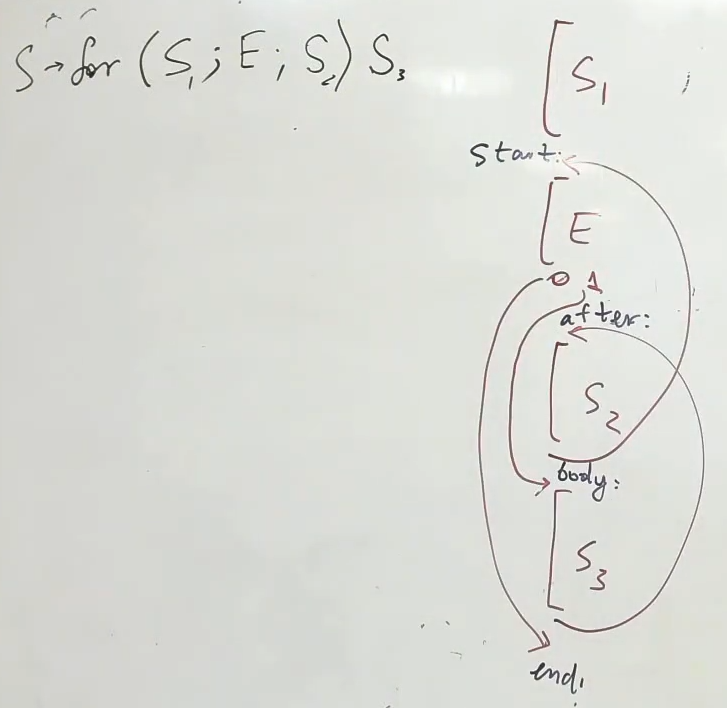 S→for (S₁; E; S₂) S₃
S₁
;
start:
E
0 1
after:
S₂
body:
S₃
end: